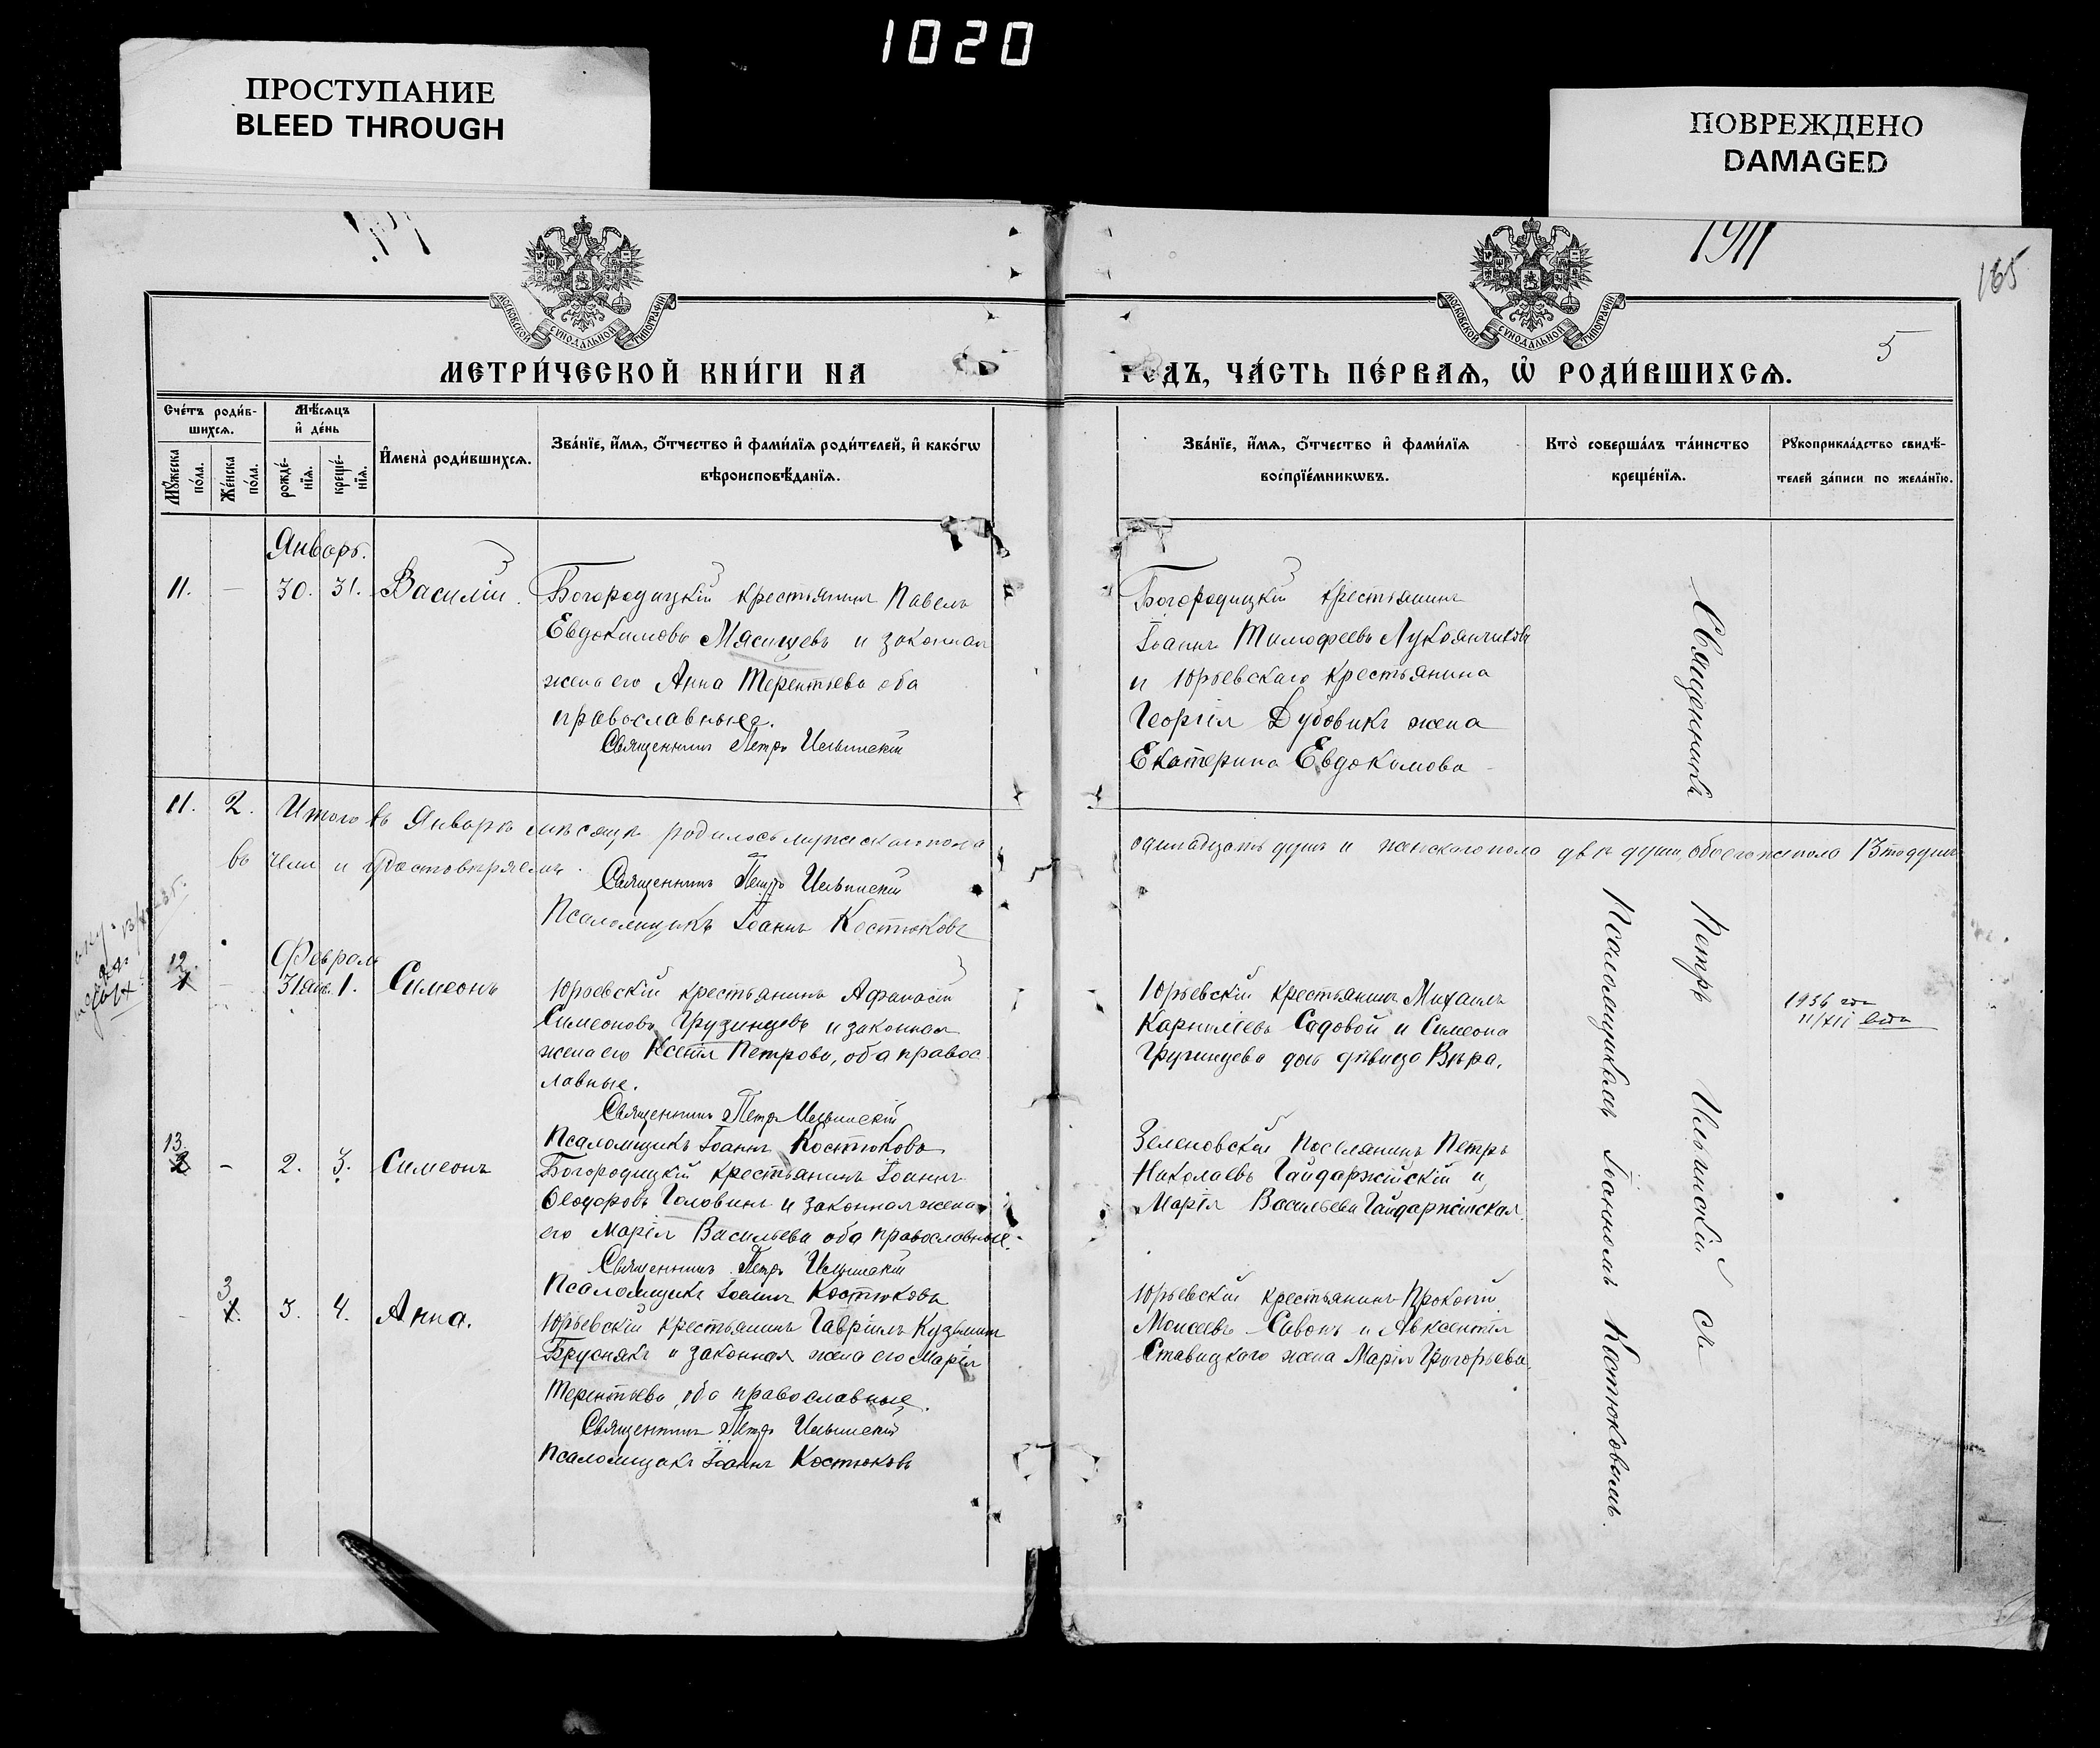 1020
ПРОСТУПАНИЕ
BLEED THROUGH
ПОВРЕЖДЕНО
DAMAGED
1911
165
5
МОСКОВСКОЙ СѴНОДАЛЬНОЙ ТИПОГРАФІИ
МОСКОВСКОЙ СѴНОДАЛЬНОЙ ТИПОГРАФІИ
МЕТРИ́ЧЕСКОЙ КНИ́ГИ НА
ГОДЪ, ЧА́СТЬ ПЕ́РВАѦ, Ѽ РОДИ́ВШИХСѦ.
Сче́тъ роди́в-
шихсѧ.
Мꙋ́жеска по́ла.
Же́нска по́ла.
Мѣ́сѧцъ
и҆ де́нь
рожде́-
нїѧ.
креще́-
нїѧ.
И҆мена̀ роди́вшихсѧ.
Зва́нїе, и҆́мѧ, ѻ҆́тчество и҆ фами́лїѧ роди́телей, и҆ како́гѡ
вѣроисповѣ́данїѧ.
Зва́нїе, и҆́мѧ, ѻ҆́тчество и҆ фами́лїѧ
воспрїе́мникѡвъ.
Кто̀ соверша́лъ та́инство
креще́нїѧ.
Рꙋкоприкла́дство свидѣ́-
телей за́писи по жела́нїю.
Январь.
11. – 30. 31. Василій.
Богородицкій крестьянинъ Павелъ
Евдокимовъ Мясищевъ и законная
жена его Анна Терентьева оба
православные.
Священникъ Петръ Ильинскій
Богородицкій крестьянинъ
Іоаннъ Тимофеевъ Лукоянчиковъ
и Юрьевскаго крестьянина
Георгія Дубовикъ жена
Екатерина Евдокимова
11. 2. Итого въ Январѣ мѣсяцѣ родилось мужскаго пола
одинадцать душъ и женскаго пола двѣ души, обоего же пола 13 то душъ
въ чемъ и удостовѣряемъ.
Священникъ Петръ Ильинскій
Псаломщикъ Іоаннъ Костюковъ
Февраль
12. – 31 янв. 1. Симеонъ
Юрьевскій крестьянинъ Афанасій
Симеоновъ Грузинцевъ и законная
жена его Ксенія Петрова, оба правос-
лавные.
Священникъ Петръ Ильинскій
Псаломщикъ Іоаннъ Костюковъ
Юрьевскій крестьянинъ Михаилъ
Карниліевъ Садовой и Симеона
Грузинцева дочь дѣвица Вѣра.
1936
11/XII
13. – 2. 3. Симеонъ
Богородицкій крестьянинъ Іоаннъ
Ѳеодоровъ Головинъ и законная жена
его Марія Васильева оба православные.
Священникъ Петръ Ильинскій
Псаломщикъ Іоаннъ Костюковъ
Зеленовскій поселянинъ Петръ
Николаевъ Гайдаржійскій и
Марія Васильева Гайдаржійская.
– 3 3. 4. Анна.
Юрьевскій крестьянинъ Гавріилъ Кузьминъ
Бруснякъ и законная жена его Марія
Терентьева, оба православные.
Священникъ Петръ Ильинскій
Псаломщикъ Іоаннъ Костюковъ
Юрьевскій крестьянинъ Прокопій
Моисеевъ Савонъ и Авксентія
Ставицкаго жена Марія Григорьева.
Священникъ Петръ Ильинскій съ
Псаломщикомъ Іоанномъ Костюковымъ.